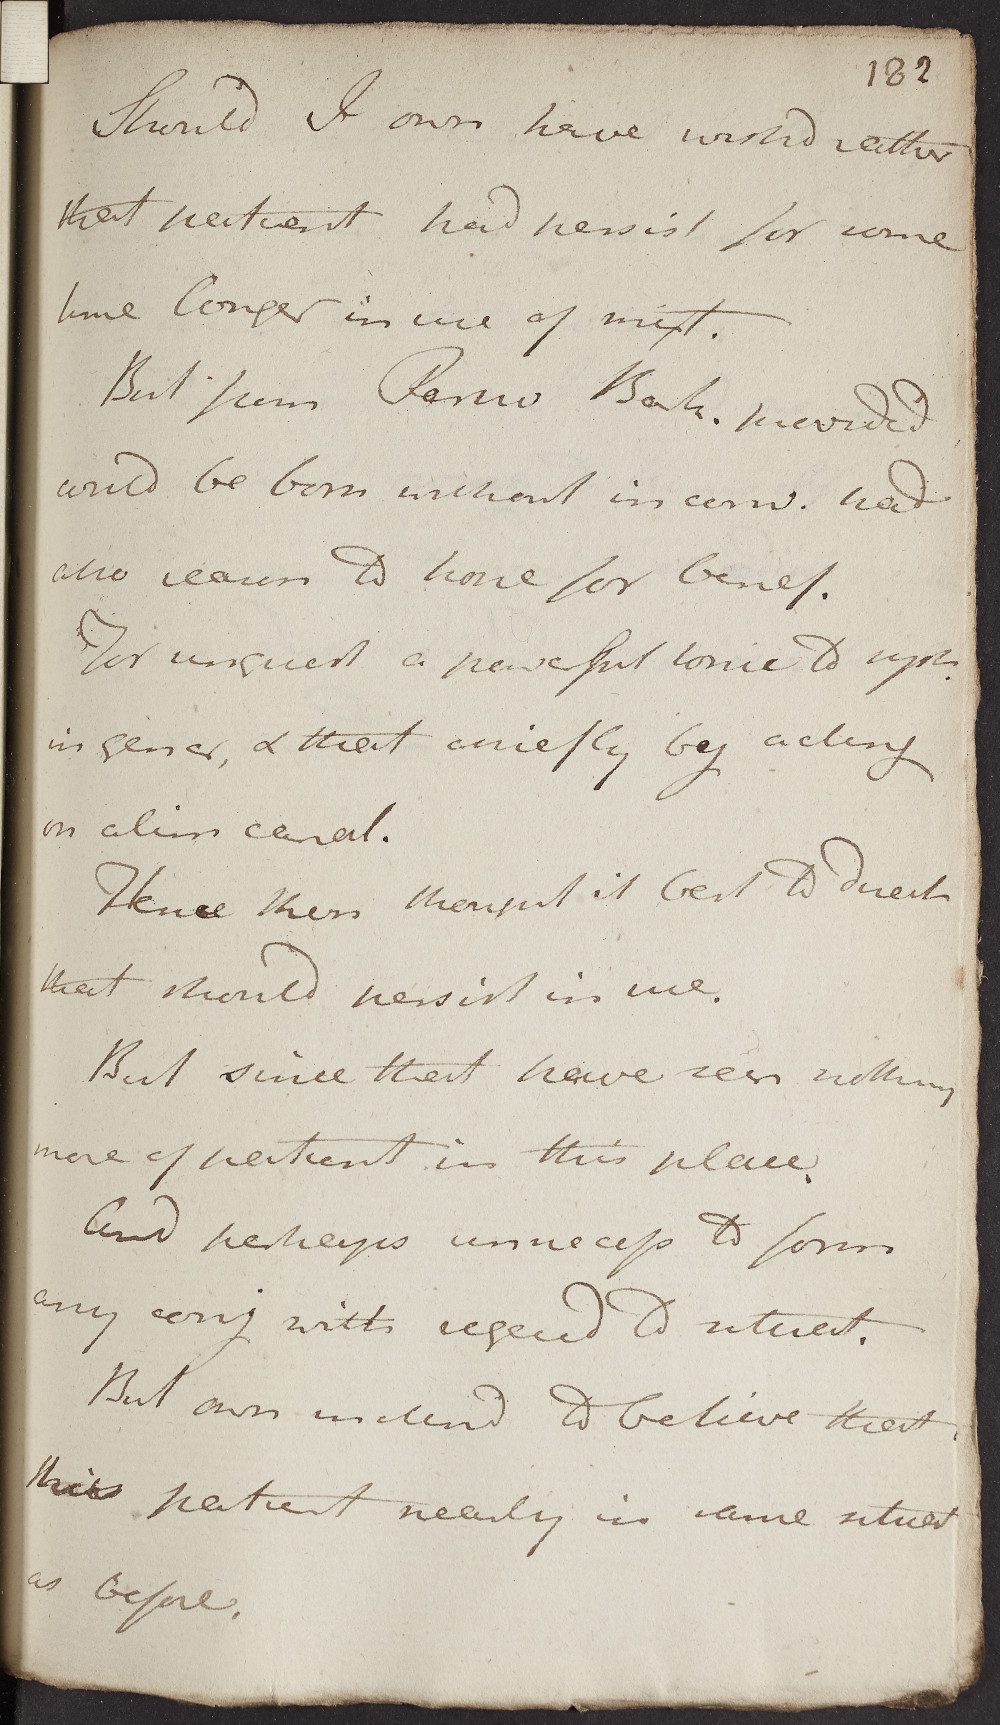 182
Should I own have wishd rather
that patient had persist for some
time longer in use of mixt.
But from Peruv Bark. provided
could be born without inconv. had
also reason to hope for benef.
For unquest a powerful tonic to syst.
in gener, & that chiefly by acting
on alim canal.
Hence then thought it best to direct
that should persist in use.
But since that have seen nothing
more of patient in this place.
And perhaps unnecess to form
any conj with regard to situat.
But own inclind to believe that
this patient nearly in same situat
as before.